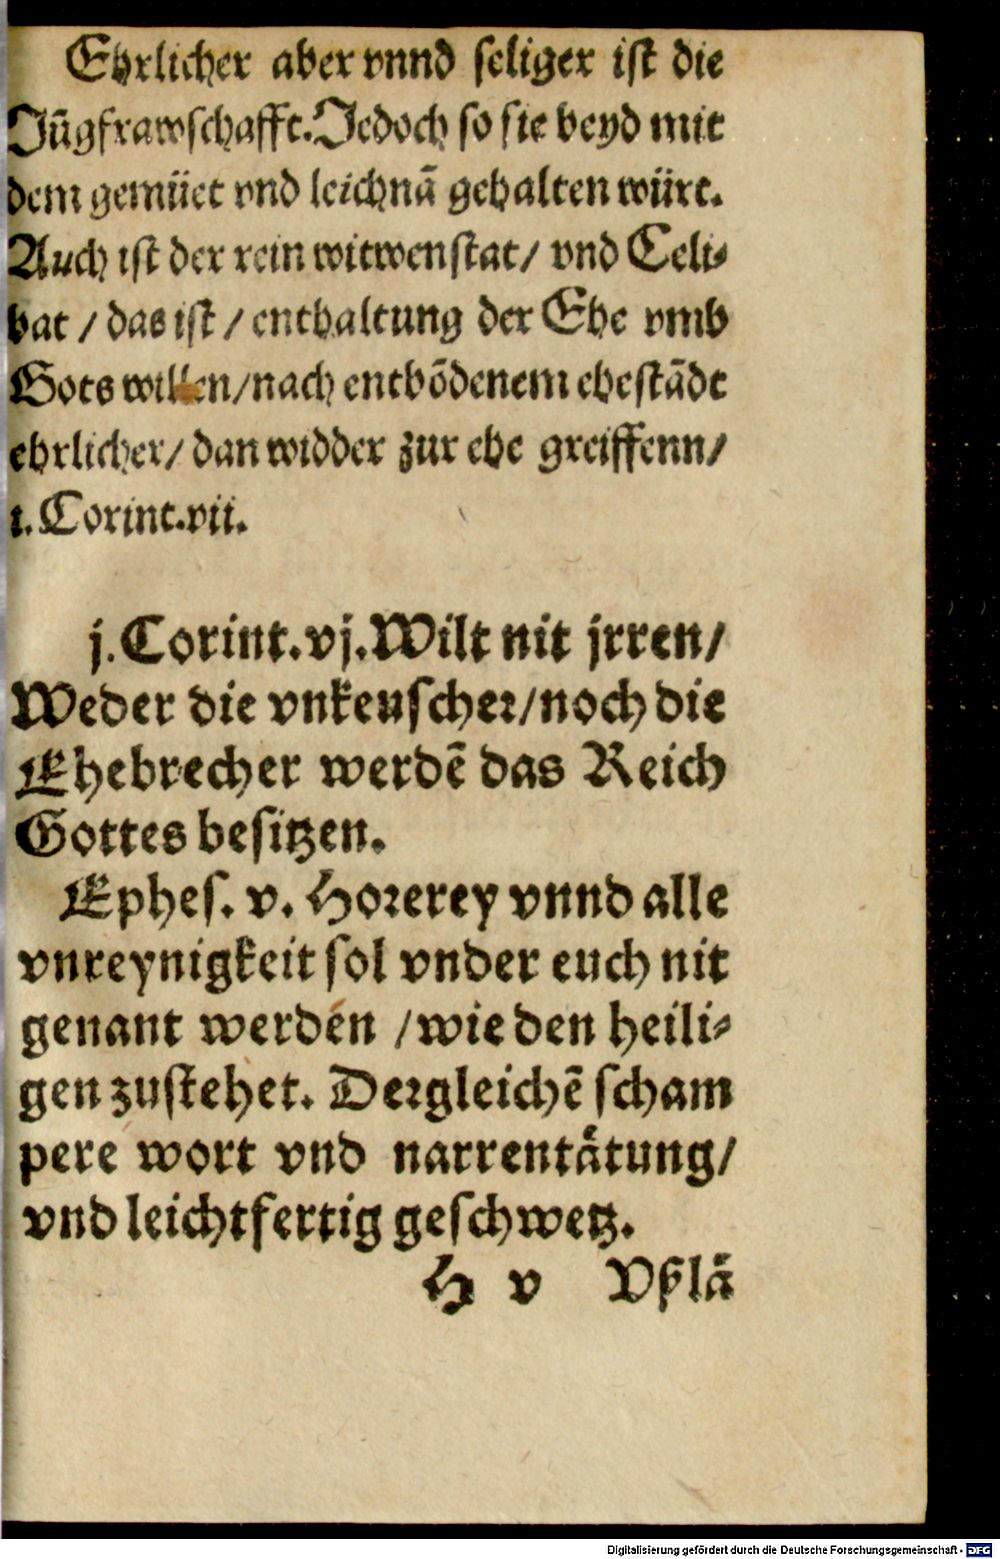 Ehrlicher aber vnnd seliger ist die
Jũgfrawschafft. Jedoch so sie beyd mit
dem gemüet vnd leichnã gehalten würt.
Auch ist der rein witwenstat/ vnd Celi⸗
bat / das ist / enthaltung der Ehe vmb
Gots willen/nach entbõdenem ehestãdt
ehrlicher/ dan widder zur ehe greiffenn/
1. Corint.vii.
j. Corint.vj. Wilt nit jrren/
Weder die vnkeuscher/noch die
Ehebrecher werdẽ das Reich
Gottes besitzen.
Ephes. v. Horerey vnnd alle
vnreynigkeit sol vnder euch nit
genant werden /wie den heili⸗
gen zustehet. Dergleichẽ scham
pere wort vnd narrentåtung/
vnd leichtfertig geschwetz.
H v Vßlã
Digitalisierung gefördert durch die Deutsche Forschungsgemeinschaft - DFG